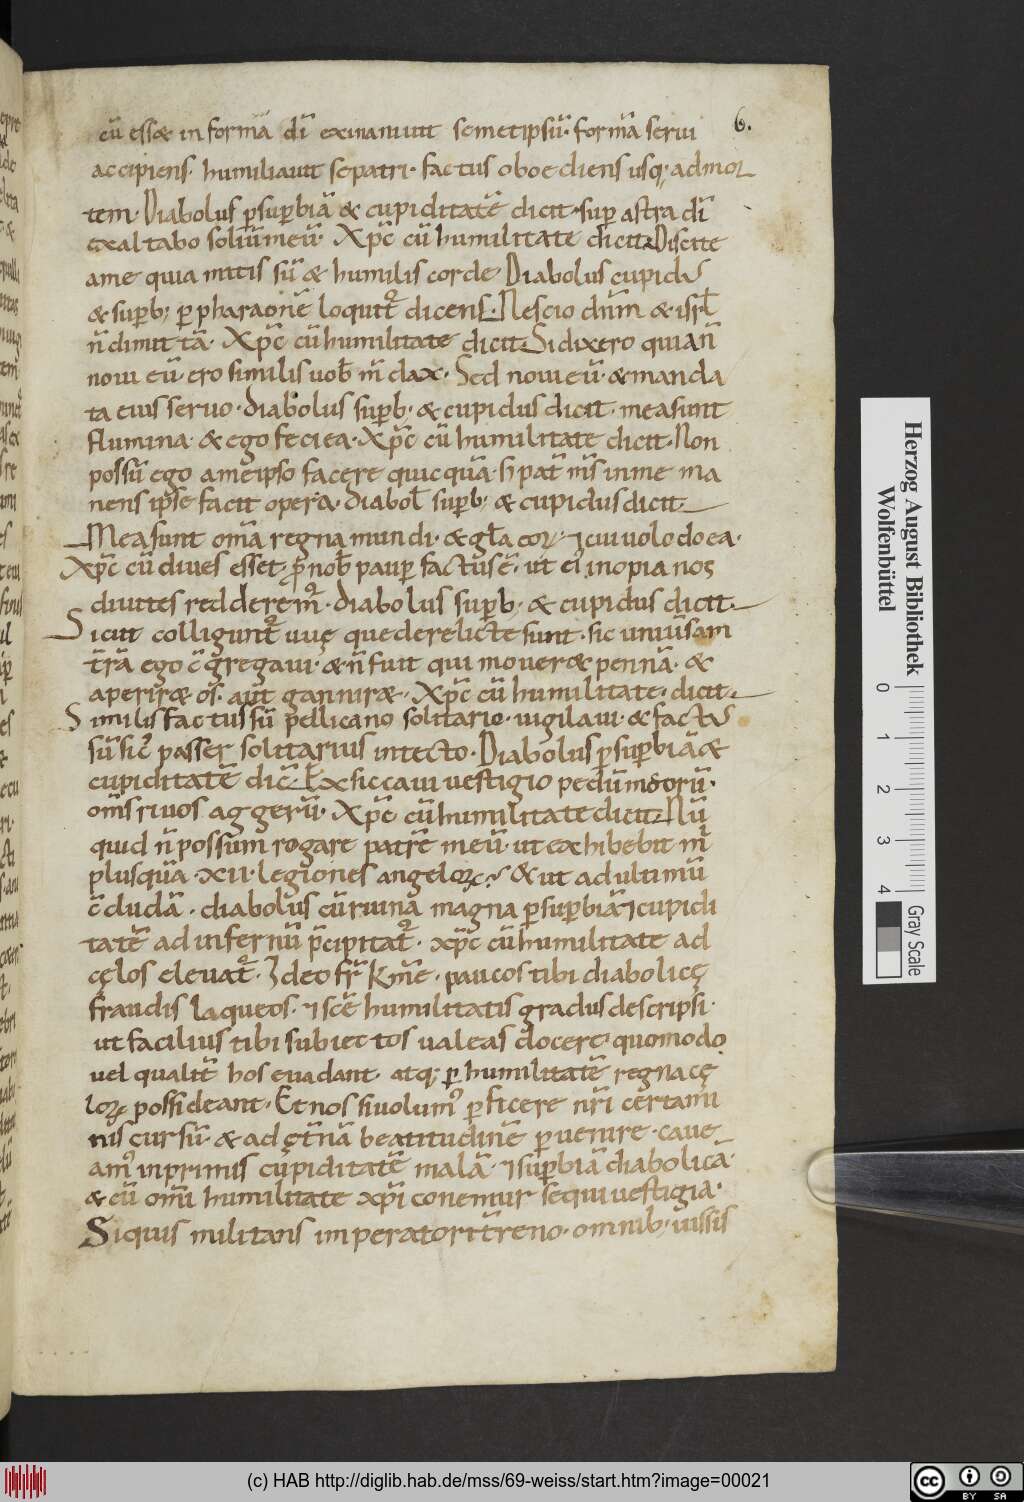 6.
cū essæ in formā dī exinaniuit semetipsū· formā serui
accipiens· humiliauit se patri· factus oboediens usq; ad mor
tem· Diabolus p supbiā & cupiditatē dicit· sup astra dī
exaltabo soliū meū· Xp̄c cū humilitate dicit· Discite
ame quia mitis sū & humilis corde Diabolus cupidꝰ
& supb; per pharaonē loquitꝰ dicens· Nescio dn̄m & isrł
n̄ dimittā· Xp̄c cū humilitate dicit· Si dixero quia n̄
noui eū ero similis uob̄ m̄dax· Sed noui eū· & manda
ta eius seruo· diabolus supb· & cupidus dicit· mea sunt
flumina· & ego feci ea· Xp̄c cū humilitate dicit· Non
possū ego ameipso facere quicquā· ſ; pat̄ m̄s inme ma
nens ipse facit opera· diabol̄ supb; & cupidus dicit·
Mea sunt om̄a regna mundi· & gl̄a eoꝝ· ⁊ cui uolo do ea·
Xp̄c cū diues esset p̄ nob̄ paup factus ē· ut ei inopia nos
diuites redderemꝰ· diabolus supb; & cupidus dicit·
Sicut colliguntꝰ uuę que derelictę sunt· sic uniūsam
t̄rā ego c̄gregaui· & n̄ fuit qui mouerœ pennā· &
aperiræ os· aut ganniræ· Xp̄c cū humilitate· dicit·
Similis factus sū pellicano solitario· uigilaui· & factꝰ
sū sic̄ passer solitarius intecto· Diabolus p supbiā &
cupiditatē dic̄· Exsiccaui uestigio pedū meorū·
om̄s riuos aggerū· Xp̄c cū humilitate dicit· Nū
quid n̄ possum rogare patrē meū· ut exhibebit m̄
plusquā· XII· legiones angeloꝝ· & ut ad ultimū
c̄cludā· diabolus cū ruina magna p supbiā ⁊ cupidi
tatē ad infernū p̄cipitatꝰ· xp̄c cū humilitate ad
cęlos eleuatꝰ· Ideo fr̄ km̄e· paucos tibi diabolicę
fraudis laqueos· ⁊ scē humilitatis gradus descripsi·
ut facilius tibi subiectos ualeas docere· quomodo
uel qualit̄ hos euadant· atq; p humilitatē regna cę
loꝝ possideant· Et nos si uolumꝰ pficere nr̄i certami
nis cursū· & ad ęt̄nā beatitudinē peruenire· caue
amꝰ inprimis cupiditatē malā· ⁊ supbiā diabolicā·
& cū om̄i humilitate xp̄i conemur sequi uestigia·
Si quis militans imperatori t̄reno· omnib; iussis
Herzog August Bibliothek
Wolfenbüttel
0
1
2
3
4
Gray Scale
(c) HAB http://diglib.hab.de/mss/69-weiss/start.htm?image=00021
cc
BY SA